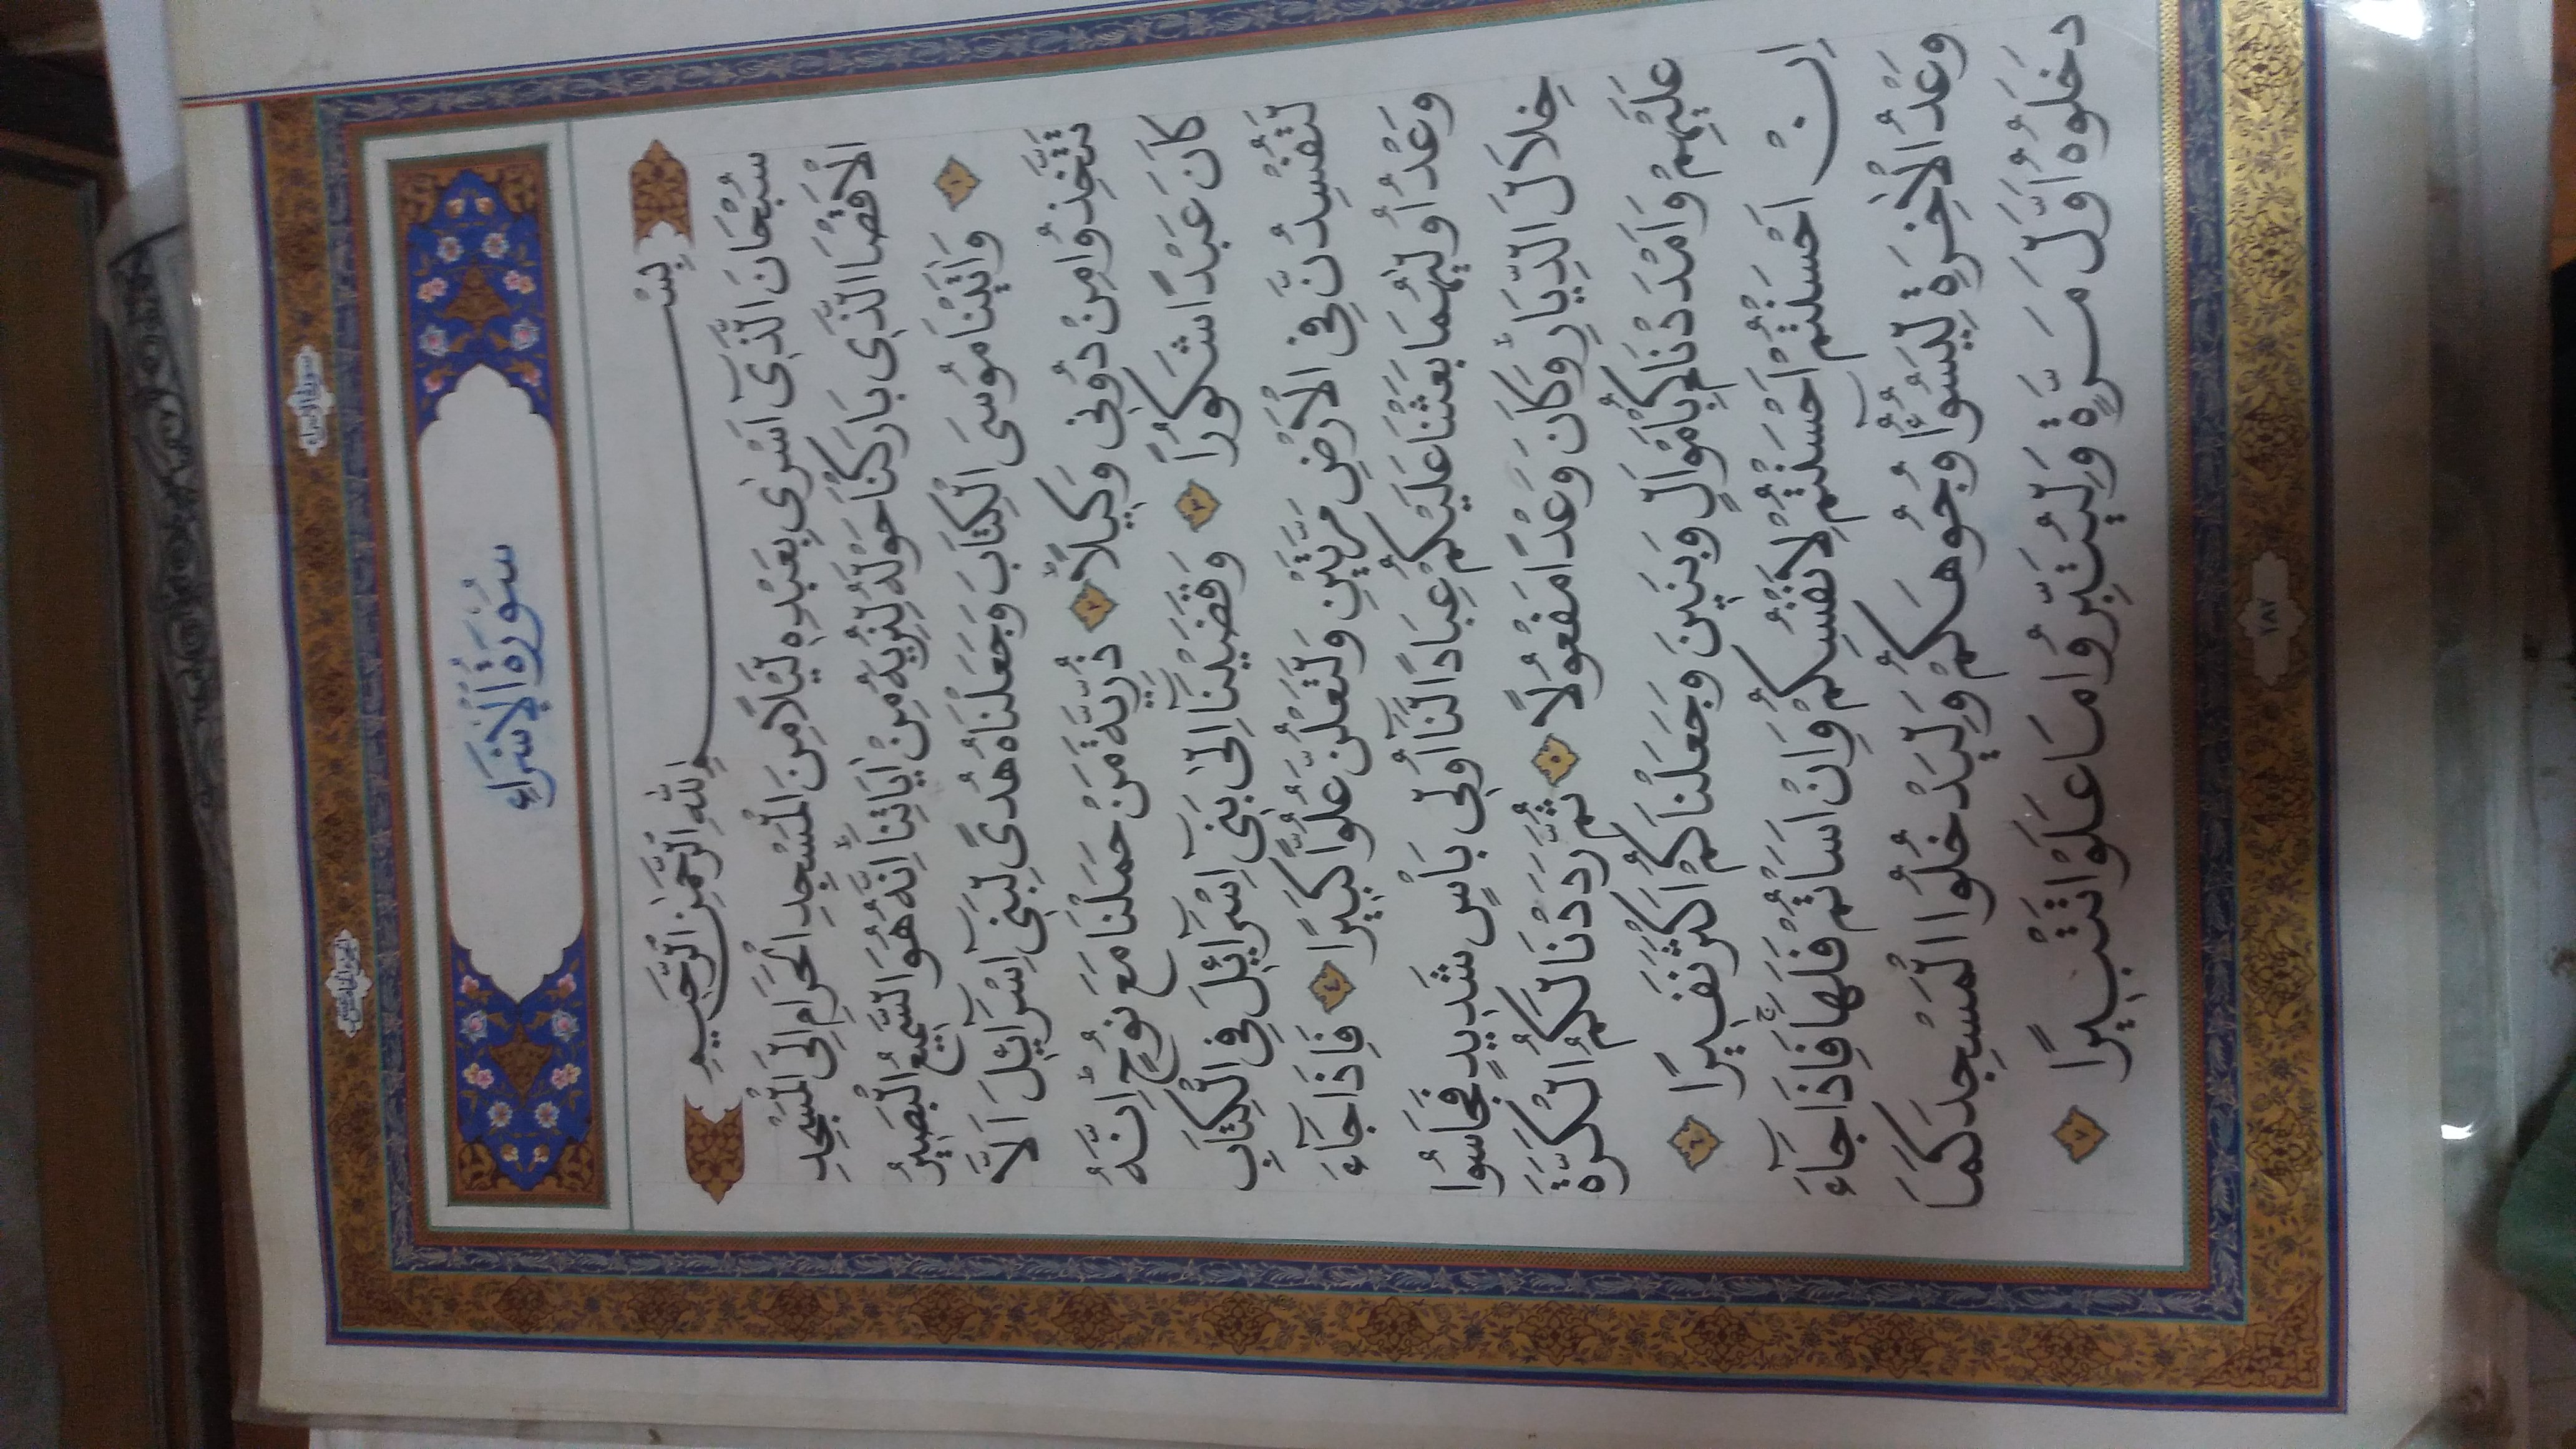 الجزء الخامس عشر
سورة الإسراء
سُورَةُ الْإِسْرَاءِ
بِسْمِ اللهِ الرَّحْمٰنِ الرَّحِيمِ
سُبْحَانَ الَّذِي اَسْرٰى بِعَبْدِهِ لَيْلًا مِنَ الْمَسْجِدِ الْحَرَامِ اِلَى الْمَسْجِدِ
الْاَقْصَا الَّذِي بَارَكْنَا حَوْلَهُ لِنُرِيَهُ مِنْ اٰيَاتِنَا اِنَّهُ هُوَ السَّمِيعُ الْبَصِيرُ
١ وَاٰتَيْنَا مُوسَى الْكِتَابَ وَجَعَلْنَاهُ هُدًى لِبَنِي اِسْرَآئِلَ اَلَّا
تَتَّخِذُوا مِنْ دُونِي وَكِيلًا ٢ ذُرِّيَّةَ مَنْ حَمَلْنَا مَعَ نُوحٍ اِنَّهُ
كَانَ عَبْدًا شَكُورًا ٣ وَقَضَيْنَا اِلٰى بَنِي اِسْرَآئِلَ فِي الْكِتَابِ
لَتُفْسِدُنَّ فِي الْاَرْضِ مَرَّتَيْنِ وَلَتَعْلُنَّ عُلُوًّا كَبِيرًا ٤ فَاِذَا جَآءَ
وَعْدُ اُولٰيهُمَا بَعَثْنَا عَلَيْكُمْ عِبَادًا لَنَا اُولِي بَاْسٍ شَدِيدٍ فَجَاسُوا
خِلَالَ الدِّيَارِ وَكَانَ وَعْدًا مَفْعُولًا ٥ ثُمَّ رَدَدْنَا لَكُمُ الْكَرَّةَ
عَلَيْهِمْ وَاَمْدَدْنَاكُمْ بِاَمْوَالٍ وَبَنِينَ وَجَعَلْنَاكُمْ اَكْثَرَ نَفِيرًا ٦
اِنْ اَحْسَنْتُمْ اَحْسَنْتُمْ لِاَنْفُسِكُمْ وَاِنْ اَسَاْتُمْ فَلَهَا فَاِذَا جَآءَ
وَعْدُ الْاٰخِرَةِ لِيَسُوٓؤُا وُجُوهَكُمْ وَلِيَدْخُلُوا الْمَسْجِدَ كَمَا
دَخَلُوهُ اَوَّلَ مَرَّةٍ وَلِيُتَبِّرُوا مَا عَلَوْا تَتْبِيرًا ٧
٢٨٢